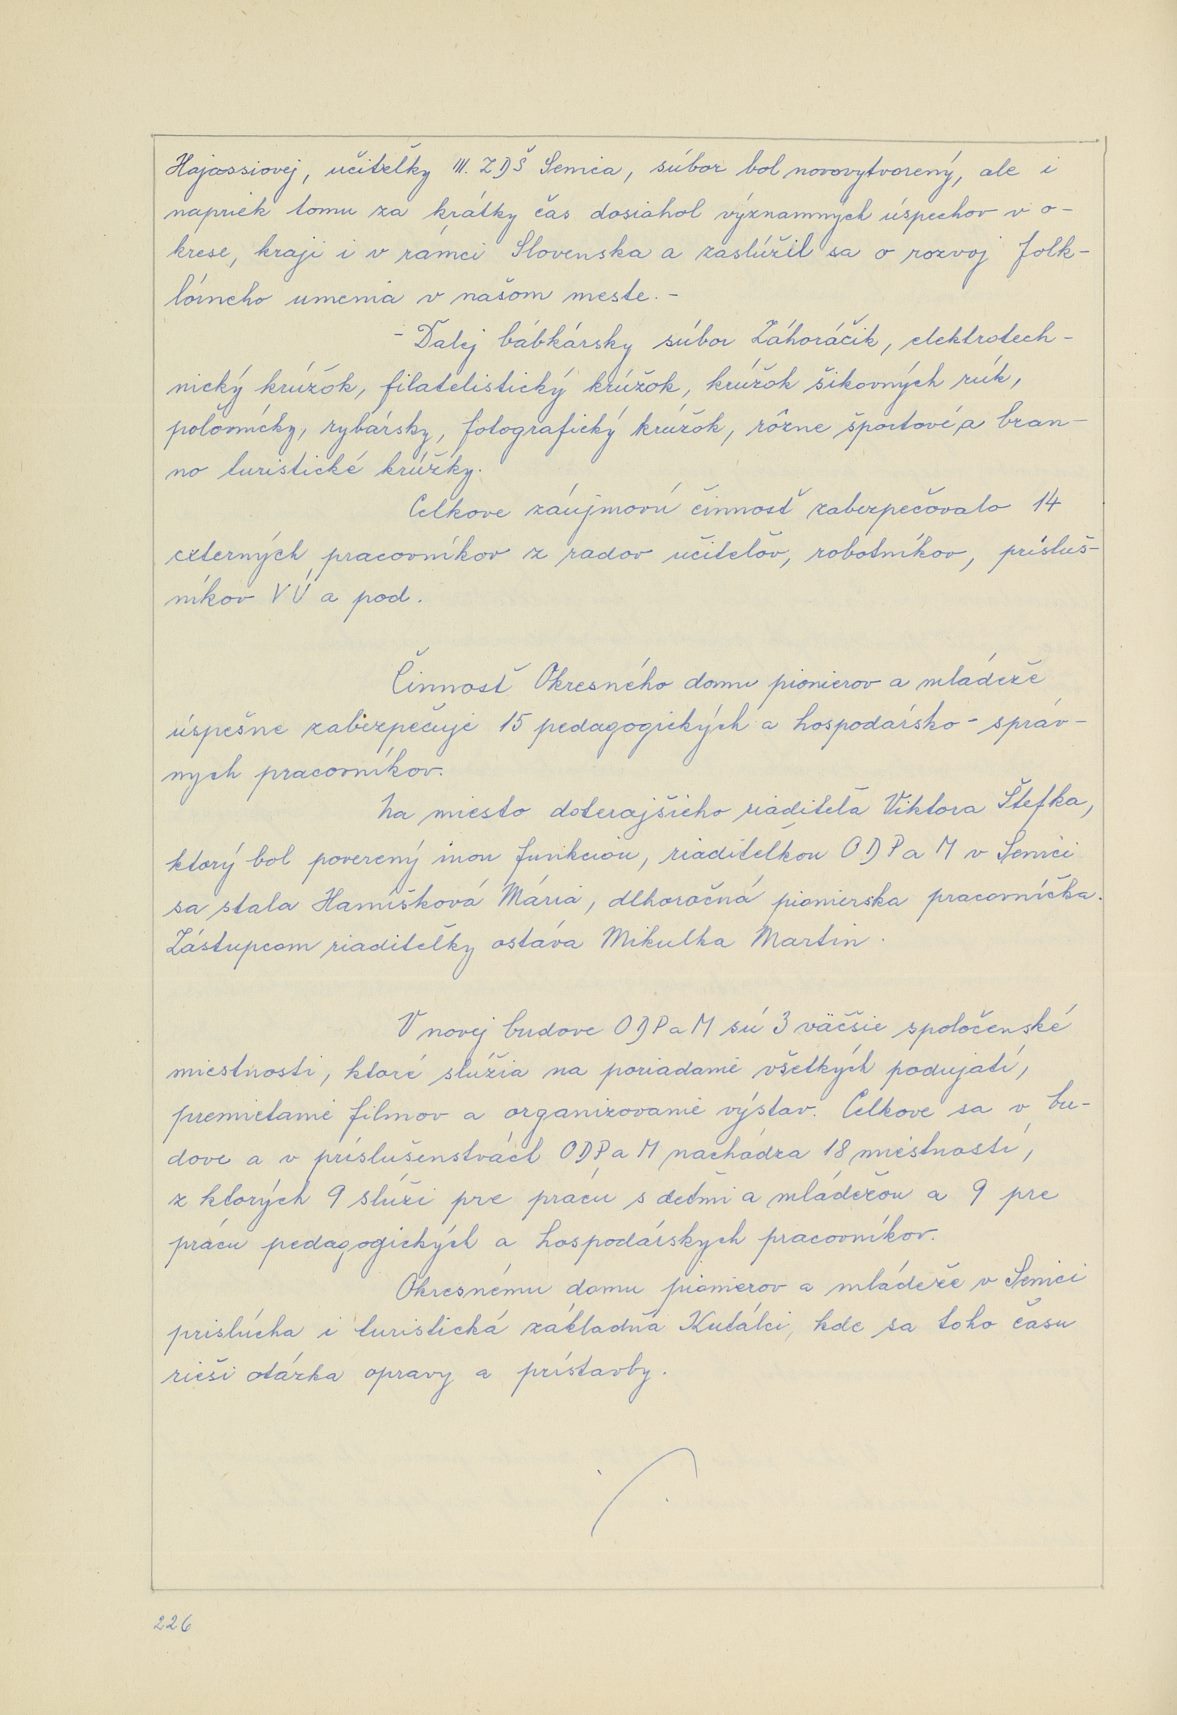 Hajassiovej, učiteľky III. ZDŠ Senica, súbor bol novovytvorený, ale i
napriek tomu za krátky čas dosiahol významných úspechov v o-
krese, kraji i v rámci Slovenska a zaslúžil sa o rozvoj folk-
lórneho umenia v našom meste. -
- Ďalej bábkársky súbor Záhoráčik, elektrotech-
nický krúžok, filatelistický krúžok, krúžok šikovných rúk,
poľovnícky, rybársky, fotografický krúžok, rôzne športové a bran-
no turistické krúžky.
Celkove záujmovú činnosť zabezpečovalo 14
externých pracovníkov z radov učiteľov, robotníkov, prísluš-
níkov VÚ a pod.
Činnosť Okresného domu pionierov a mládeže
úspešne zabezpečuje 15 pedagogických a hospodársko - správ-
nych pracovníkov.
Na miesto doterajšieho riaditeľa Viktora Štefka,
ktorý bol poverený inou funkciou, riaditeľkou ODPaM v Senici
sa stala Hamíšková Mária, dlhoročná pionierska pracovníčka.
Zástupcom riaditeľky ostáva Mikulka Martin.
V novej budove ODPaM sú 3 väčšie spoločenské
miestnosti, ktoré slúžia na poriadanie všetkých podujatí,
premietanie filmov a organizovanie výstav. Celkove sa v bu-
dove a v príslušenstvách ODPaM nachádza 18 miestností,
z ktorých 9 slúži pre prácu s deťmi a mládežou a 9 pre
prácu pedagogických a hospodárskych pracovníkov.
Okresnému domu pionierov a mládeže v Senici
prislúcha i turistická základňa Kutálci, kde sa toho času
rieši otázka opravy a prístavby.
226